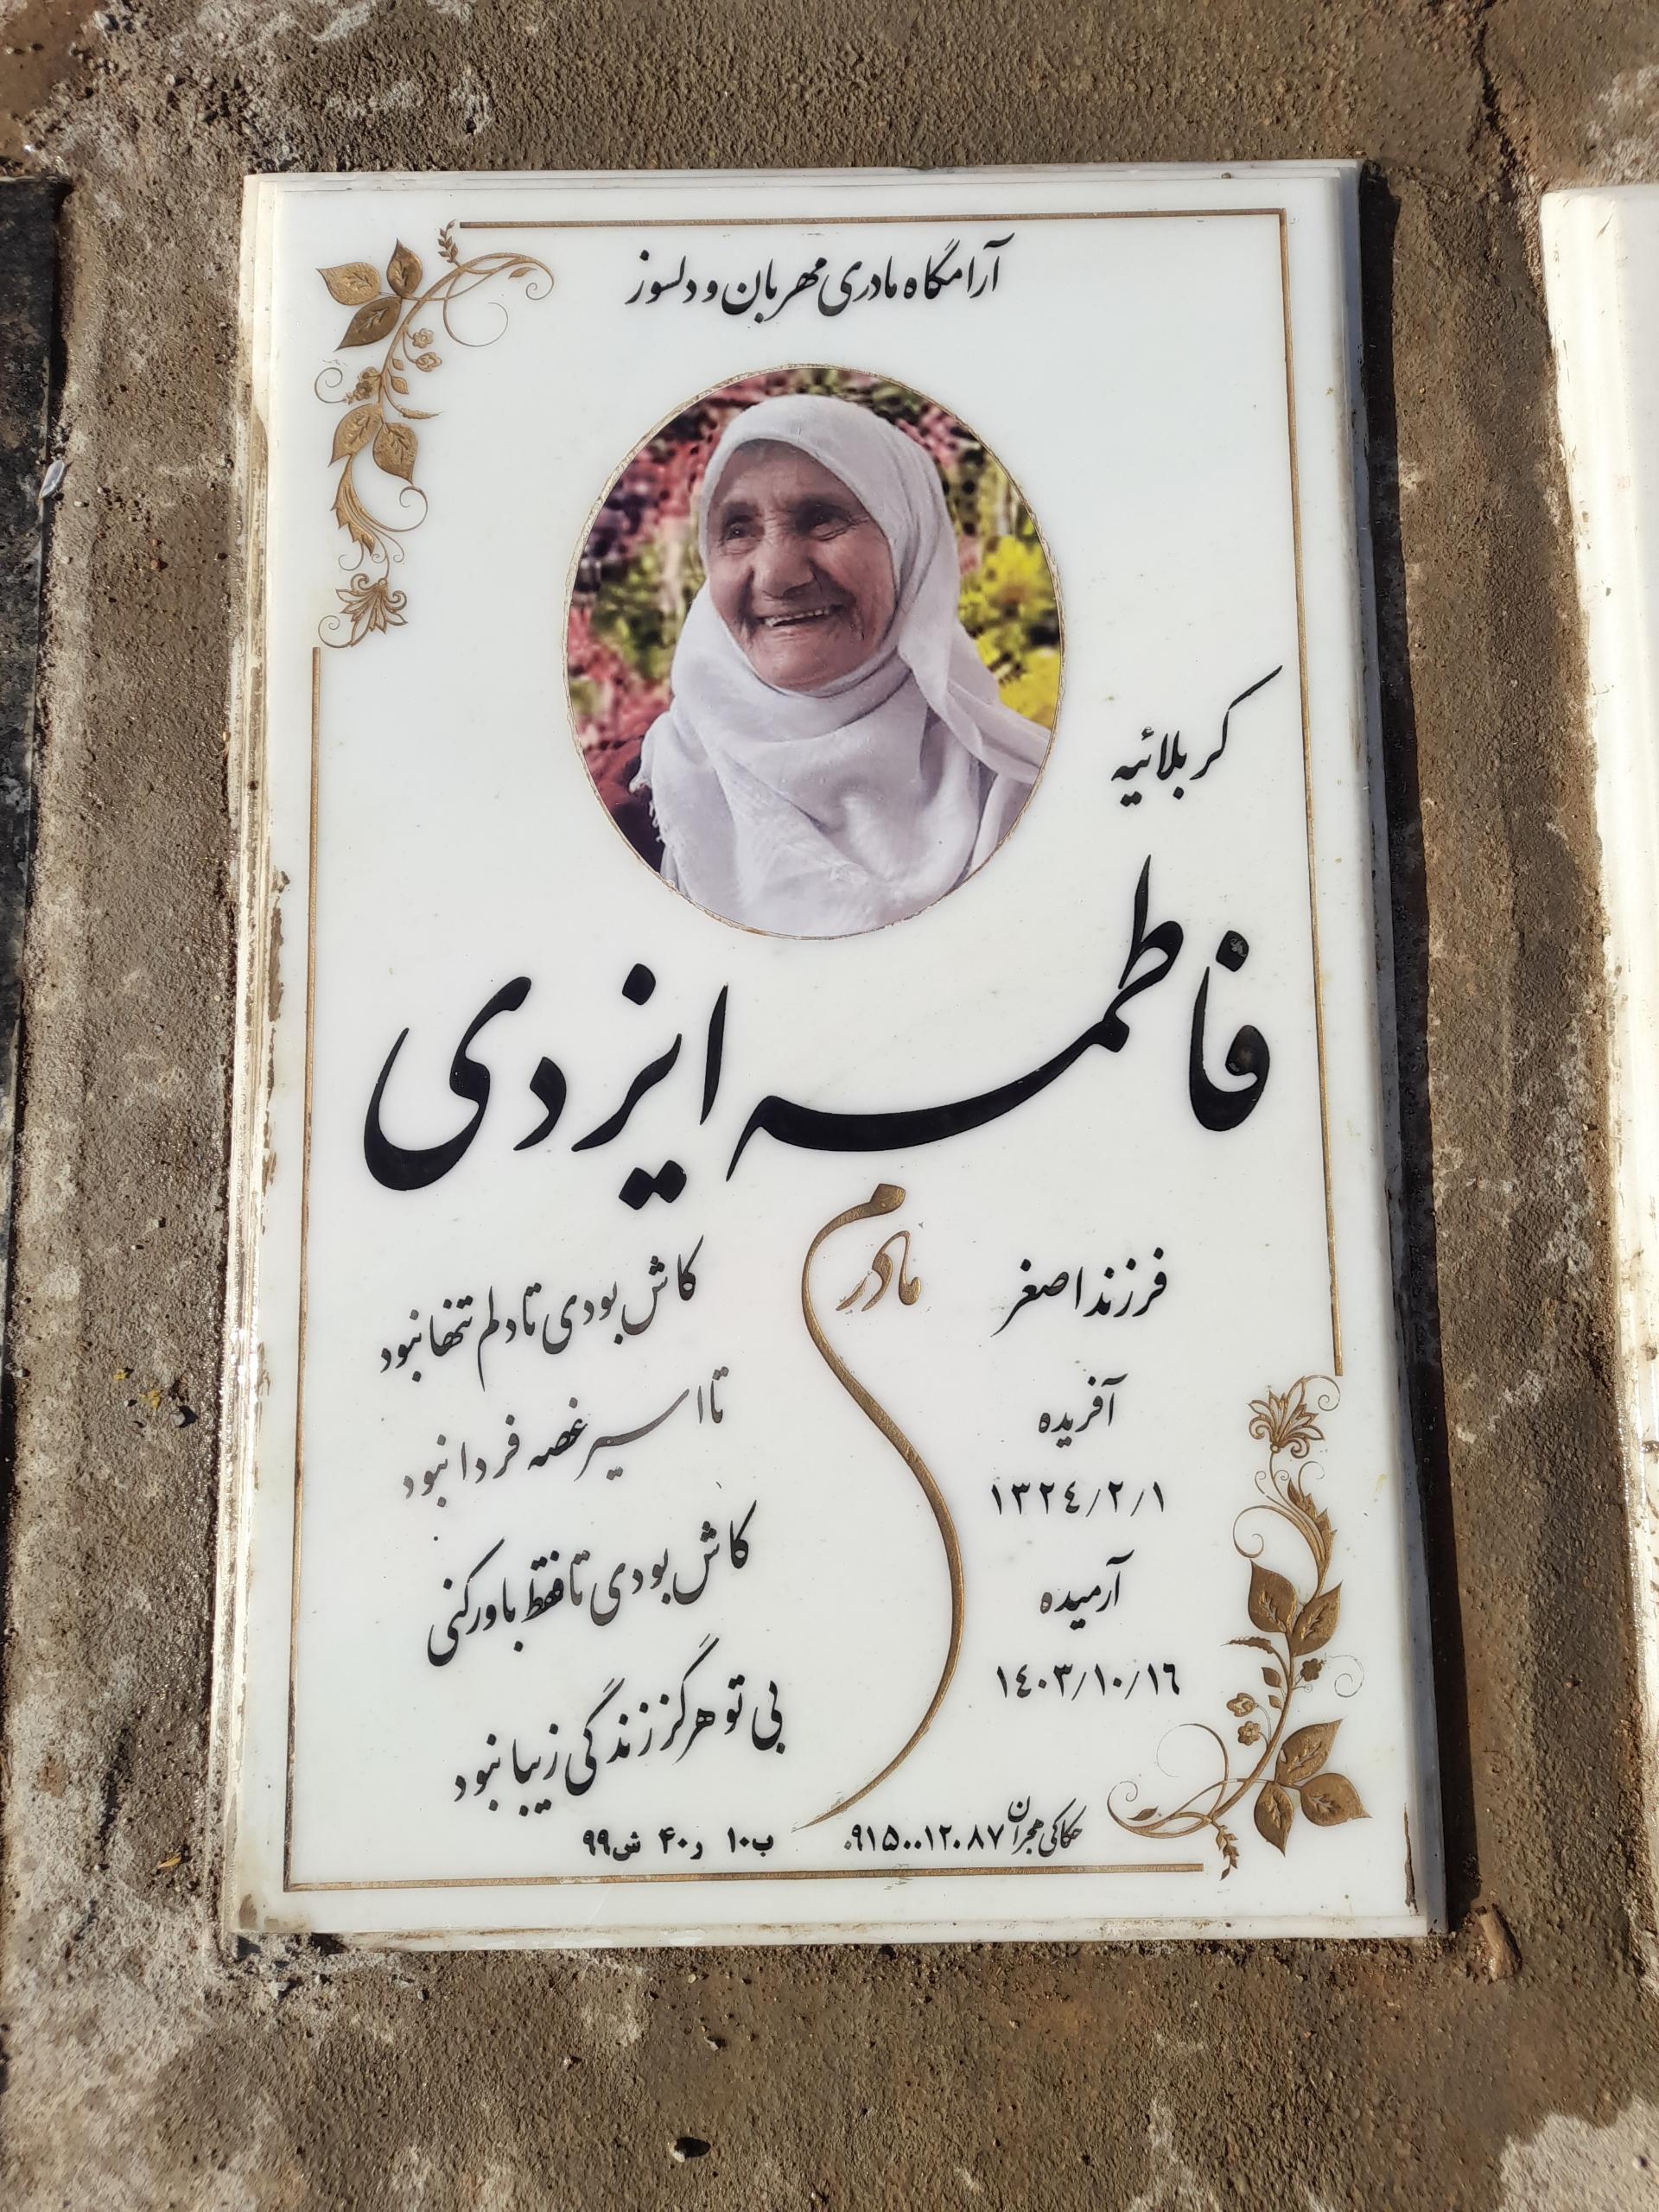 آرامگاه مادری مهربان و دلسوز
کربلائیه
فاطمه ایزدی
مادرم
فرزند اصغر
آفریده
۱۳۲٤/۲/۱
آرمیده
۱٤۰۳/۱۰/۱٦
کاش بودی تا دلم تنها نبود
تا اسیر غصه فردا نبود
کاش بودی تا فقط باور کنی
بی تو هرگز زندگی زیبا نبود
حکاکی هجران ۰۹۱۵۰۰۱۲۰۸۷
ب۱۰ ر۴۰ ش۹۹